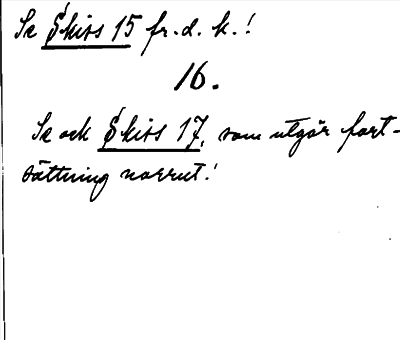 Se Skiss 15 fr. d. k.!
16.
Se och Skiss 17, som utgör fort-
sättning norrut!